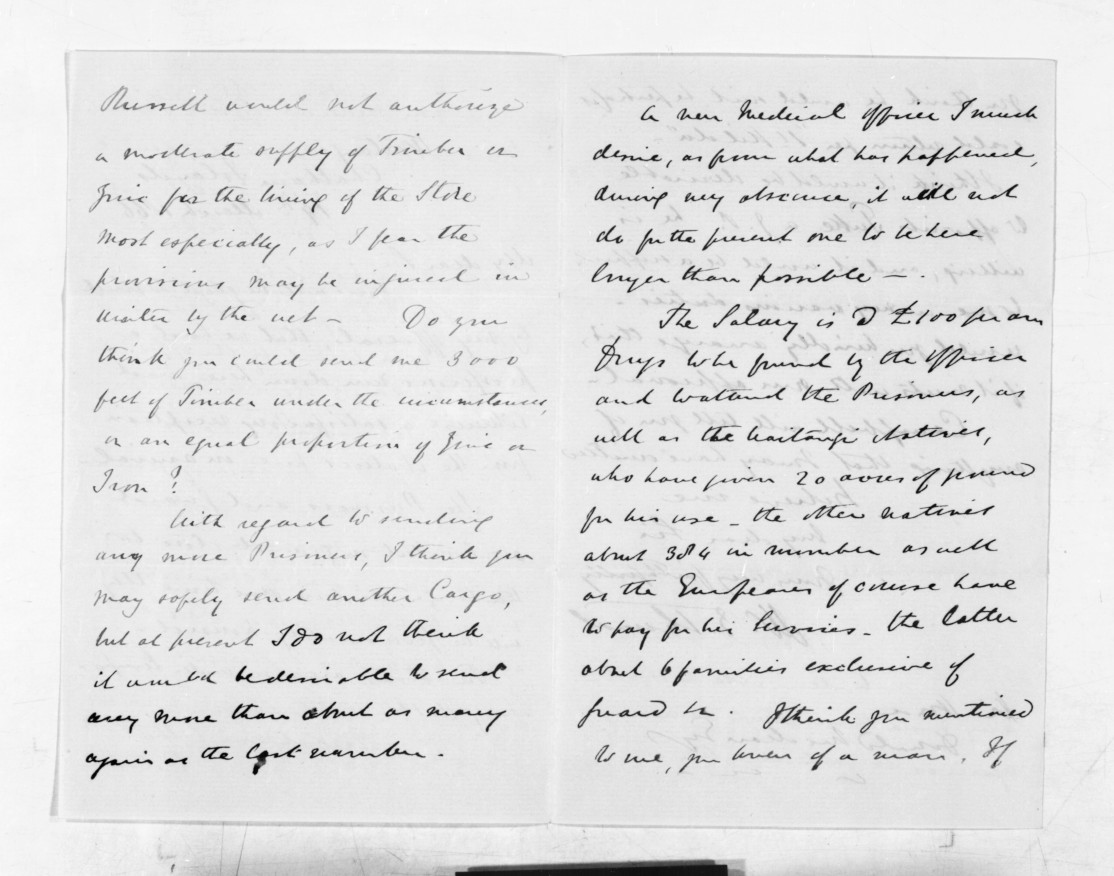 Russell would not authorize
a moderate supply of Timber or
Zinc for the lining of the Store
most especially, as I fear the
provisions may be injured in
winter by the wet — Do you
think you could send me 3000
feet of Timber under the circumstances,
or an equal proportion of Zinc or
Iron?
With regard to sending
any more Prisoners, I think you
may safely send another Cargo,
but at present I do not think
it would be desirable to send
any more than about as many
again as the last number.
A new Medical officer I much
desire, as from what has happened,
during my absence, it will not
do for the present one to be here
longer than possible —.
The Salary is £100 per ann
Drugs to be found by the officer
and to attend the Prisoners, as
well as the Waitangi Natives,
who have given 20 acres of ground
for his use — the other natives
about 384 in number as well
as the Europeans of course have
to pay for his Services — the latter
about 6 families exclusive of
guard &c. I think you mentioned
to me, you knew of a man. If